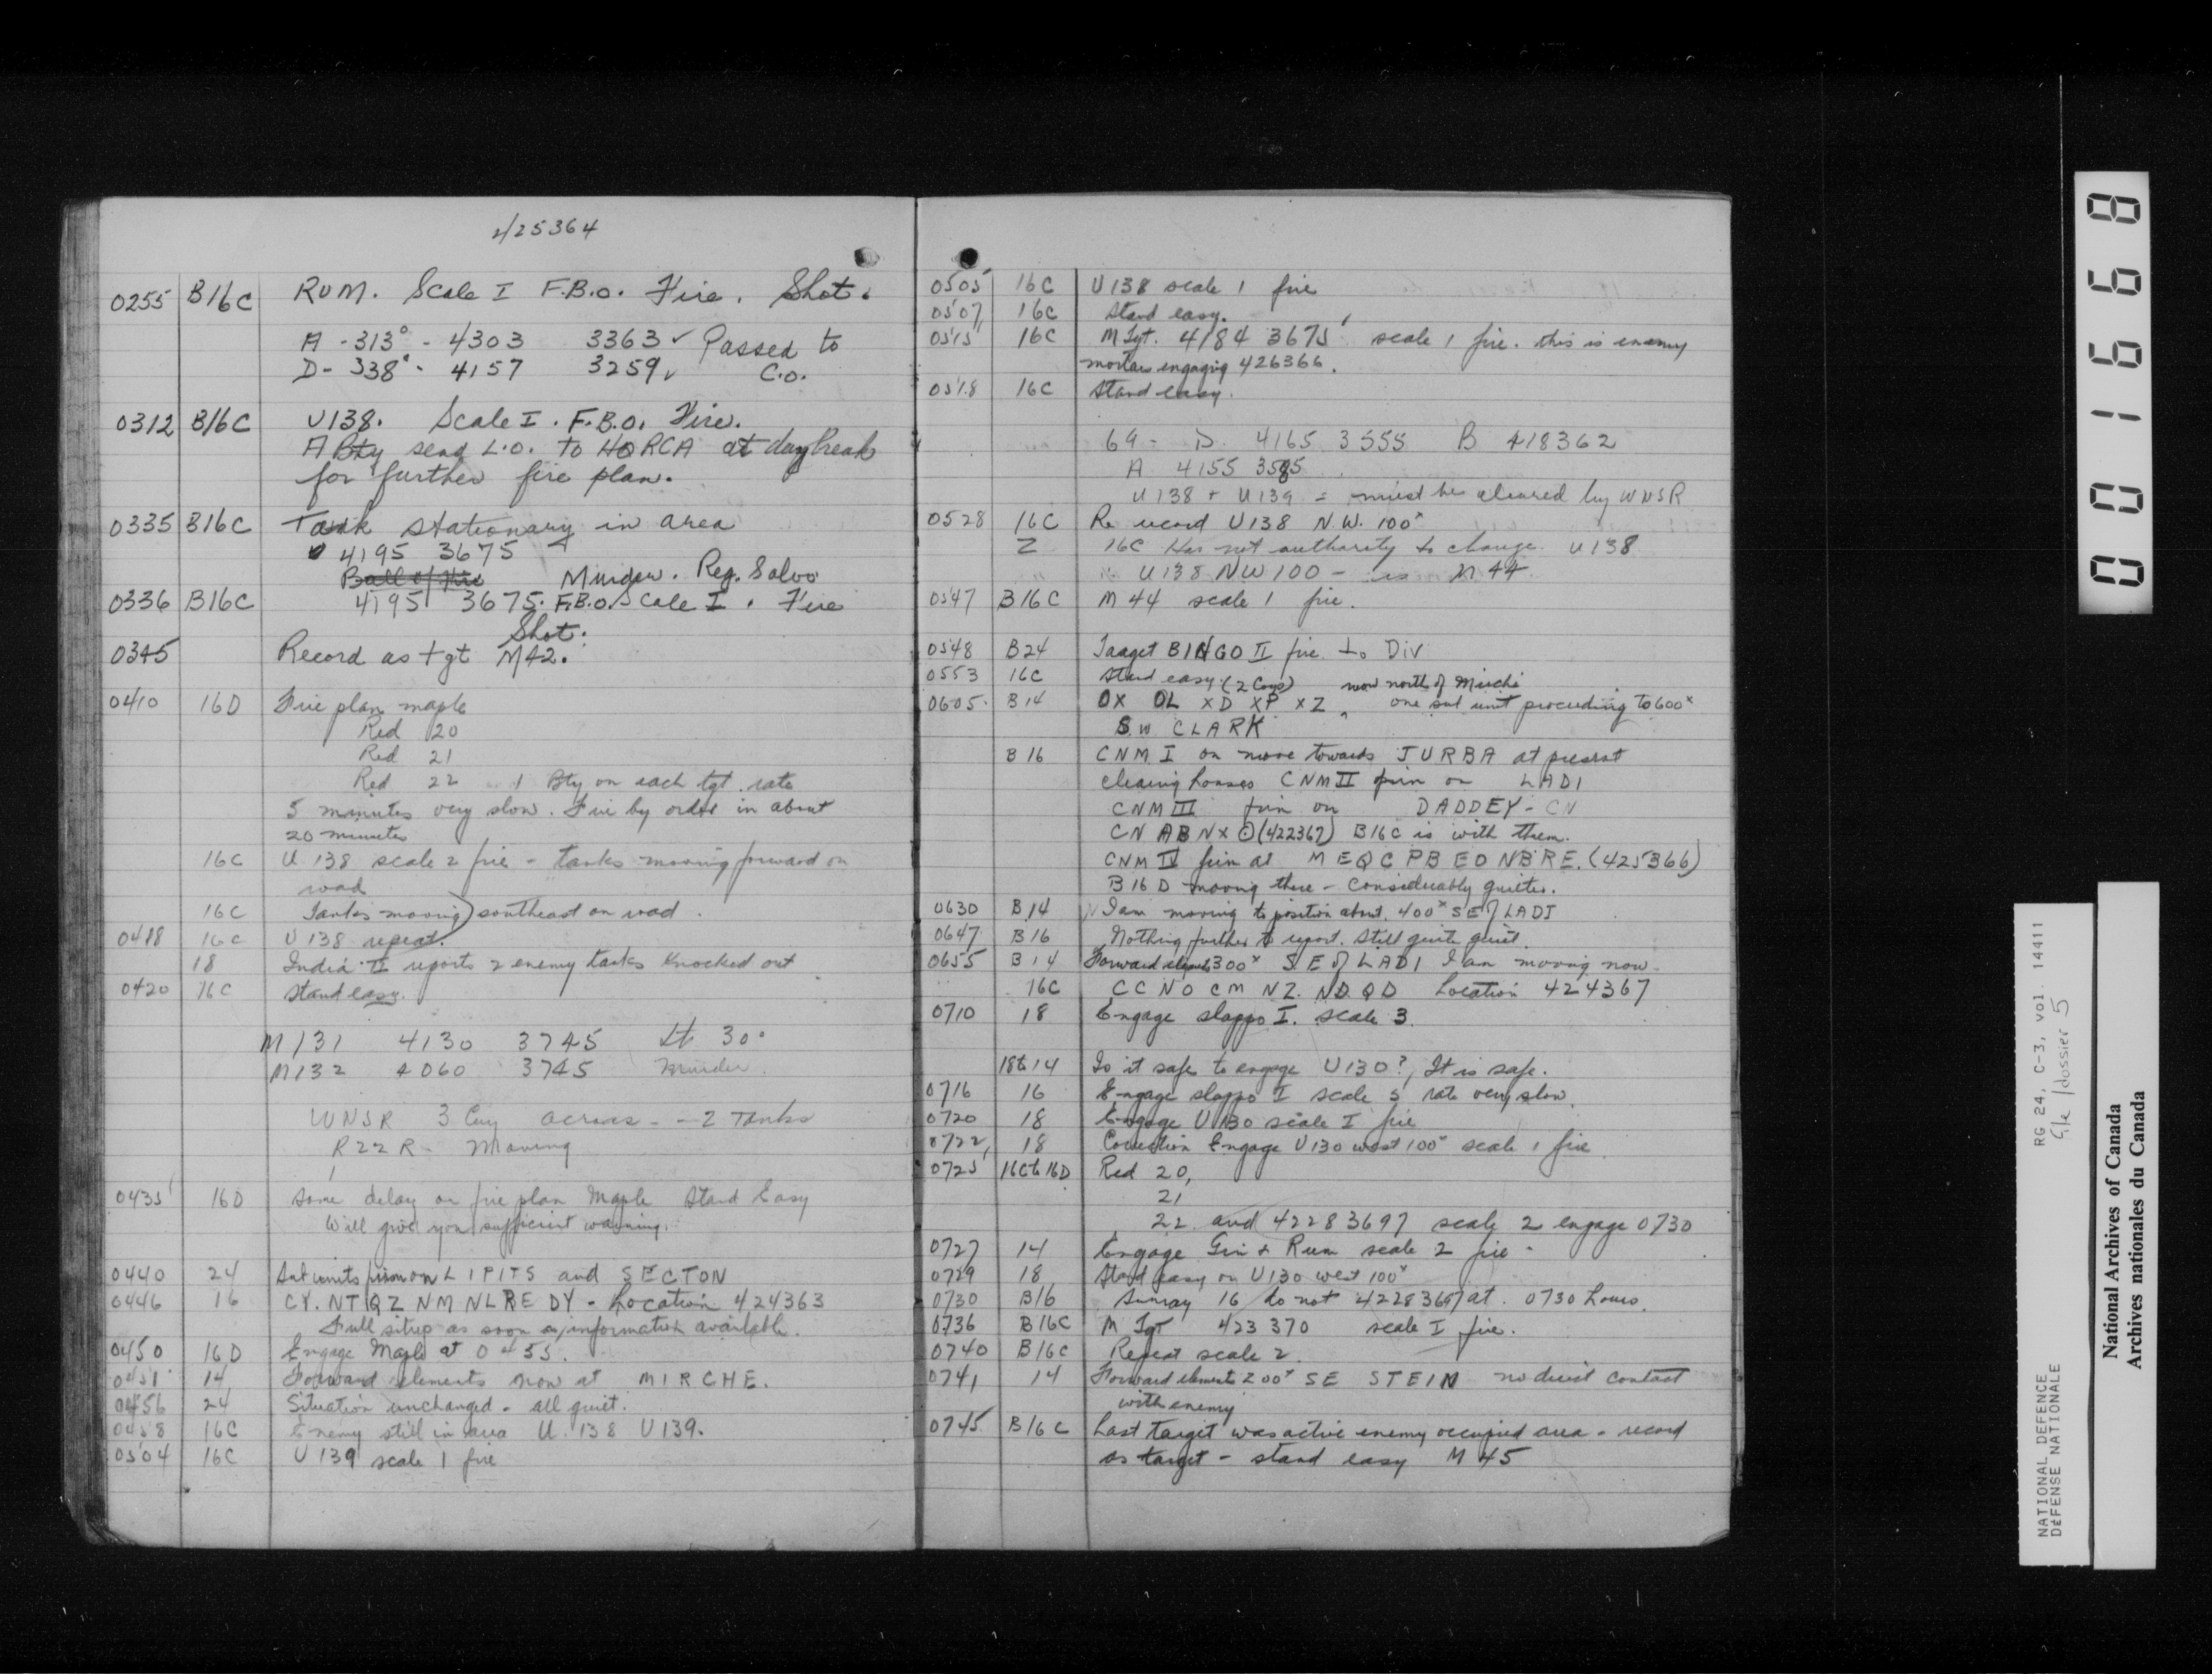 425364
0255 B16C RUM. Scale I F.B.O. Fire. Shot.
A - 313° - 4303 3363 ✓ Passed to
D - 338° - 4157 3259 ✓ C.O.
0312 B16C U138. Scale I. F.B.O. Fire.
A Bty send L.O. to HQ RCA at daybreak
for further fire plan.
0335 B16C Tank stationary in area
4195 3675
Ball of Fire Murder. Reg. Salvo
0336 B16C 4195 3675. F.B.O. Scale I. Fire
Shot.
0345 Record as tgt M42.
0410 16D Fire plan maple
Red 20
Red 21
Red 22 1 Bty on each tgt. rate
5 minutes very slow. Fire by order in about
20 minutes
16C U 138 scale 2 fire - tanks moving forward on
road
16C Tanks moving southeast on road.
0418 16C U 138 repeat.
18 India II reports 2 enemy tanks knocked out
0420 16C stand easy.
M131 4130 3745 Lt 30°
M132 4060 3745 Murder
WNSR 3 Coy across - - 2 Tanks
R22R - Moving
0435 16D Some delay on fire plan Maple Stand Easy
Will give you sufficient warning.
0440 24 Sub units firm on LIPITS and SECTON
0446 16 CY. NT QZ NM NL RE DY - Location 424363
Full sitrep as soon as information available.
0450 16D Engage Maple at 0455.
0451 14 Forward elements now at MIRCHE.
0456 24 Situation unchanged - all quiet.
0458 16C Enemy still in area U.138 U139.
0504 16C U139 scale 1 fire
0505 16C U138 scale 1 fire
0507 16C Stand easy.
0515 16C M Tgt. 4184 3675 scale 1 fire. this is enemy
mortars engaging 426366.
0518 16C Stand easy.
69 - D. 4165 3555 B 418362
A 4155 3585
U138 + U139 = must be cleared by WNSR
0528 16C Re record U138 N.W. 100x
Z 16C Has not authority to change U138
U138 NW 100 - is M44
0547 B16C M44 scale 1 fire.
0548 B24 Target BINGO II fire to Div
0553 16C Stand easy. (2 Coys) now north of Mirche
0605. B14 OX OL XD XP XZ, one sub unit proceeding to 600x
S.W CLARK
B16 CNM I on move towards JURBA at present
clearing houses CNM II firm on LADI
CNM III firm on DADDEY - CN
CN AB NX ⊙ (422367) B16C is with them.
CNM IV firm at MEQC PB EO NB RE. (425366)
B16D moving there - considerably quieter.
0630 B14 I am moving to position about 400x SE of LADI
0647 B16 Nothing further to report. Still quite quiet.
0655 B14 Forward elements 300x SE of LADI I am moving now.
16C CC NO CM NZ. ND. QD Location 424367
0710 18 Engage slappo I. scale 3.
18 to 14 Is it safe to engage U130?, It is safe.
0716 16 Engage slappo I scale 5 rate very slow.
0720 18 Engage U130 scale I fire
0722 18 Correction Engage U130 west 100x scale 1 fire
0725 16C to 16D Red 20,
21
22 and 42283697 scale 2 engage 0730
0727 14 Engage Gin & Rum scale 2 fire -
0729 18 Stand easy on U130 west 100x
0730 B16 Sunray 16 do not 42283697 at 0730 hours.
0736 B16C M Tgt 423370 scale I fire.
0740 B16C Repeat scale 2.
0741 14 Forward elements 200x SE STEIN no direct contact
with enemy
0745 B16C Last target was active enemy occupied area - record
as target - stand easy M 45
001668
RG 24, C-3, vol. 14411
file/dossier 5
NATIONAL DEFENCE
DÉFENSE NATIONALE
National Archives of Canada
Archives nationales du Canada